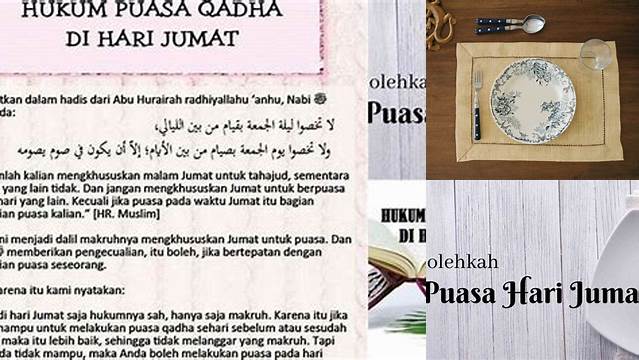 HUKUM PUASA QADHA
DI HARI JUMAT
tkan dalam hadis dari Abu Hurairah radhiyallahu 'anhu, Nabi ﷺ
da:
لا تخصوا ليلة الجمعة بقيام من بين الليالي،
ولا تخصوا يوم الجمعة بصيام من بين الأيام؛ إلا أن يكون في صوم يصومه
nlah kalian mengkhususkan malam Jumat untuk tahajud, sementara
yang lain tidak. Dan jangan mengkhususkan Jumat untuk berpuasa
hari yang lain. Kecuali jika puasa pada waktu Jumat itu bagian
ian puasa kalian." [HR. Muslim]
ni menjadi dalil makruhnya mengkhususkan Jumat untuk puasa. Dan
ﷺ memberikan pengecualian, itu boleh, jika bertepatan dengan
ian puasa seseorang.
arena itu kami nyatakan:
di hari Jumat saja hukumnya sah, hanya saja makruh. Karena itu jika
mampu untuk melakukan puasa qadha sehari sebelum atau sesudah
maka itu lebih baik, sehingga tidak melanggar yang makruh. Tapi
da tidak mampu, maka Anda boleh melakukan puasa pada hari
olehkah
Puasa
HUKUM
DI H
olehkah
Puasa Hari Juma